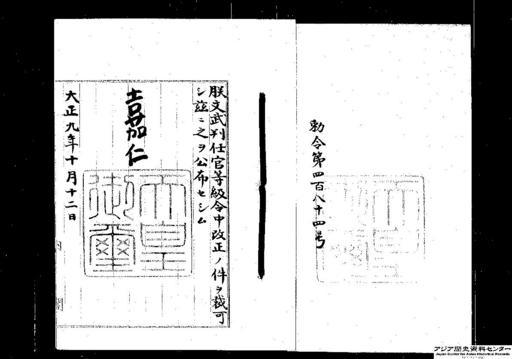 勅令第四百八十四号
朕文武判任官等級令中改正ノ件ヲ裁可
シ茲ニ之ヲ公布セシム
嘉仁
天皇御璽
大正九年十月十二日
アジア歴史資料センター
Japan Center for Asian Historical Records